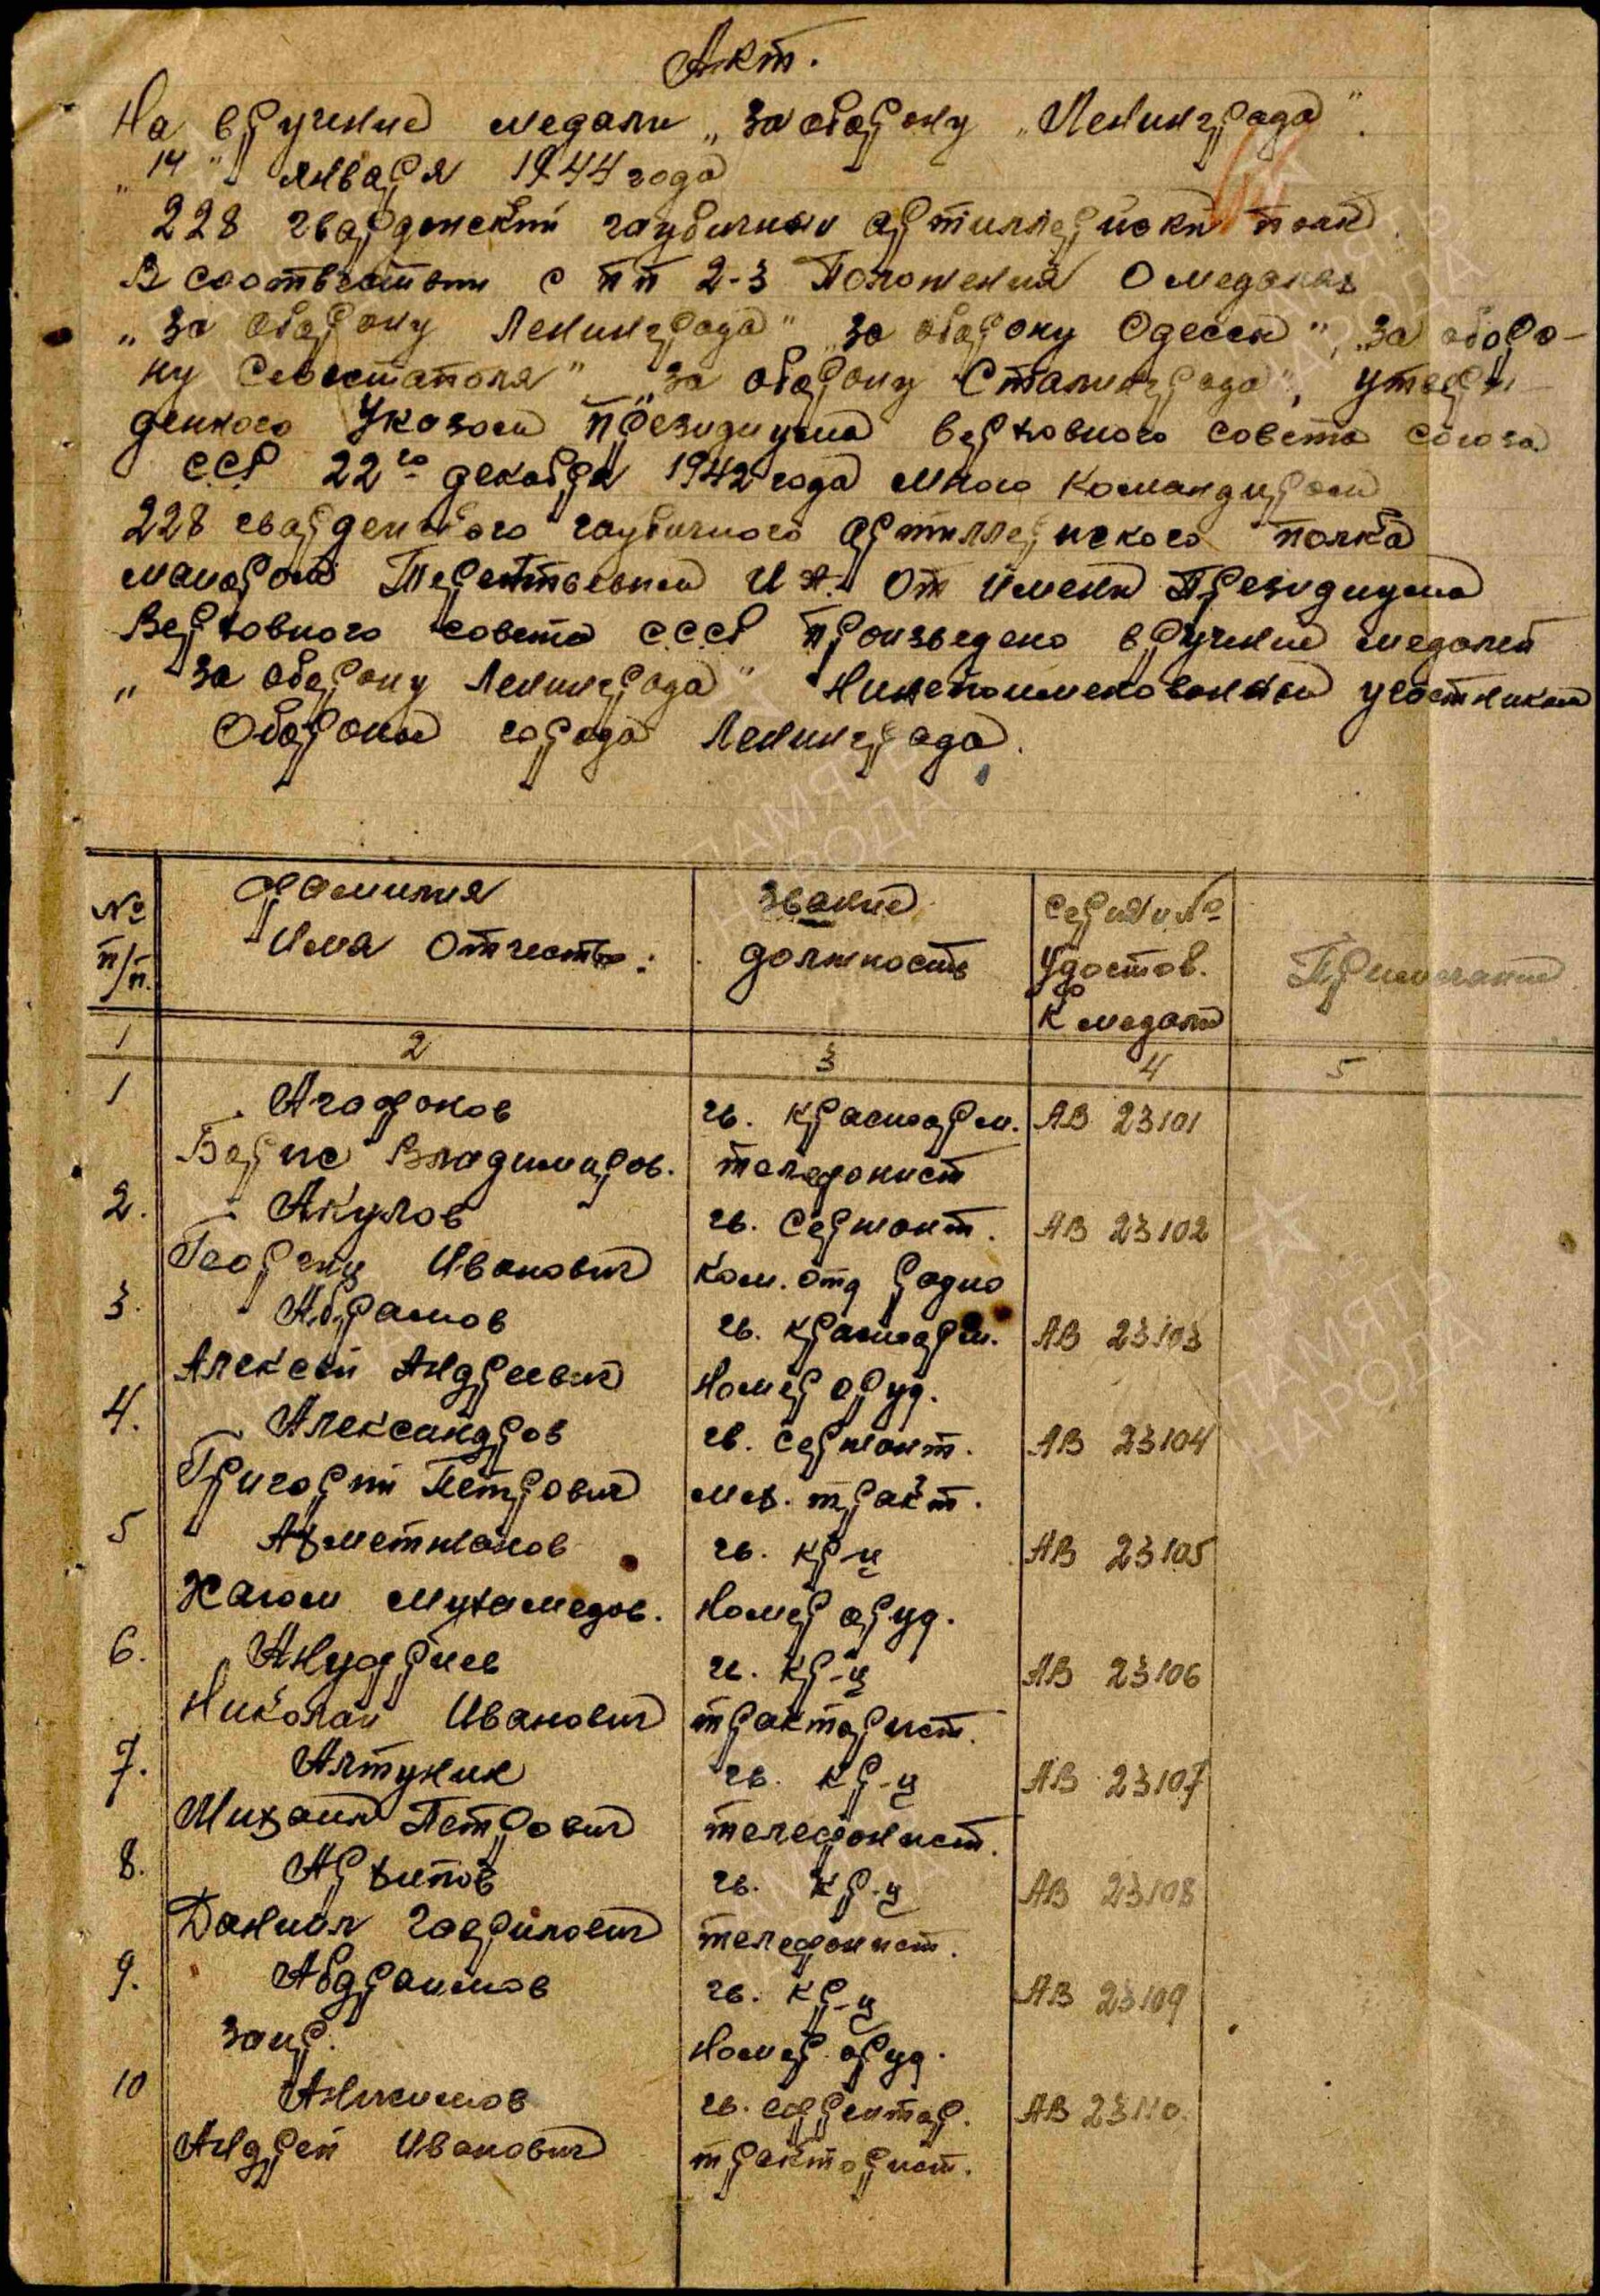 Акт.
На вручение медали „За оборону „Ленинграда".
„14" января 1944 года
228 гварденский гаубичный артиллерийский полк
В соответствии с пп 2-3 Положения О медалях
„За оборону Ленинграда" „за оборону Одессы", „За оборо-
ну Севастаполя" „за оборону Сталинграда", утверж-
денного Указом президиума верховного совета союза
ССР 22го декабря 1942 года мною командиром
228 гварденского гаубичного артиллерийского полка
майором И А. От имени Президиума
Верховного совета С.С.С.Р произведено вручение медалей
„За оборону Ленинграда" Нижепоименованным участникам
Обороны города Ленинграда.
№ п/п.
Фамилия
Имя Отчество:
звание
должность
серия и №
Удостов.
К медали
Примечание
1 2 3 4 5
1 Агафонов гв. красноарм. АВ 23101
Борис Владимиров. телефонист
2. Акулов гв. Сержант. АВ 23102
Георгий Иванович Ком. отд радио
3. Абрамов гв. красноарм. АВ 23103
Алексей Андреевич Номер оруд.
4. Александров гв. сержант. АВ 23104
Григорий Петрович мех. тракт.
5 Ахметжанов гв. кр-ц АВ 23105
Мухамедов. Номер оруд.
6. Ануфриев гв. кр-ц АВ 23106
Николай Иванович тракторист.
7. Алтунин гв. кр-ц АВ 23107
Михаил Петрович телефонист.
8. Архипов гв. кр-ц АВ 23108
Даниал Гаврилович телефонист.
9. Абдраимов гв. кр-ц АВ 23109
Заир. Номер оруд.
10 Анисимов гв. ефрейтор. АВ 23110.
Андрей Иванович тракторист.
ПАМЯТЬ
НАРОДА